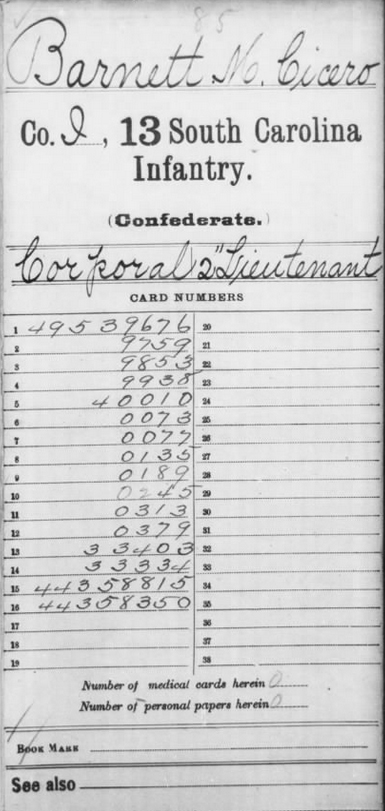 85
Barnett M. Cicero
Co. I, 13 South Carolina
Infantry.
(Confederate.)
Corporal 2" Lieutenant
CARD NUMBERS
1 49539676 20
2 9759 21
3 9853 22
4 9938 23
5 40010 24
6 0073 25
7 0077 26
8 0135 27
9 0189 28
10 0245 29
11 0313 30
12 0379 31
13 33403 32
14 33334 33
15 44358815 34
16 44358350 35
17 36
18 37
19 38
Number of medical cards herein 0
Number of personal papers herein 0
BOOK MARK
See also